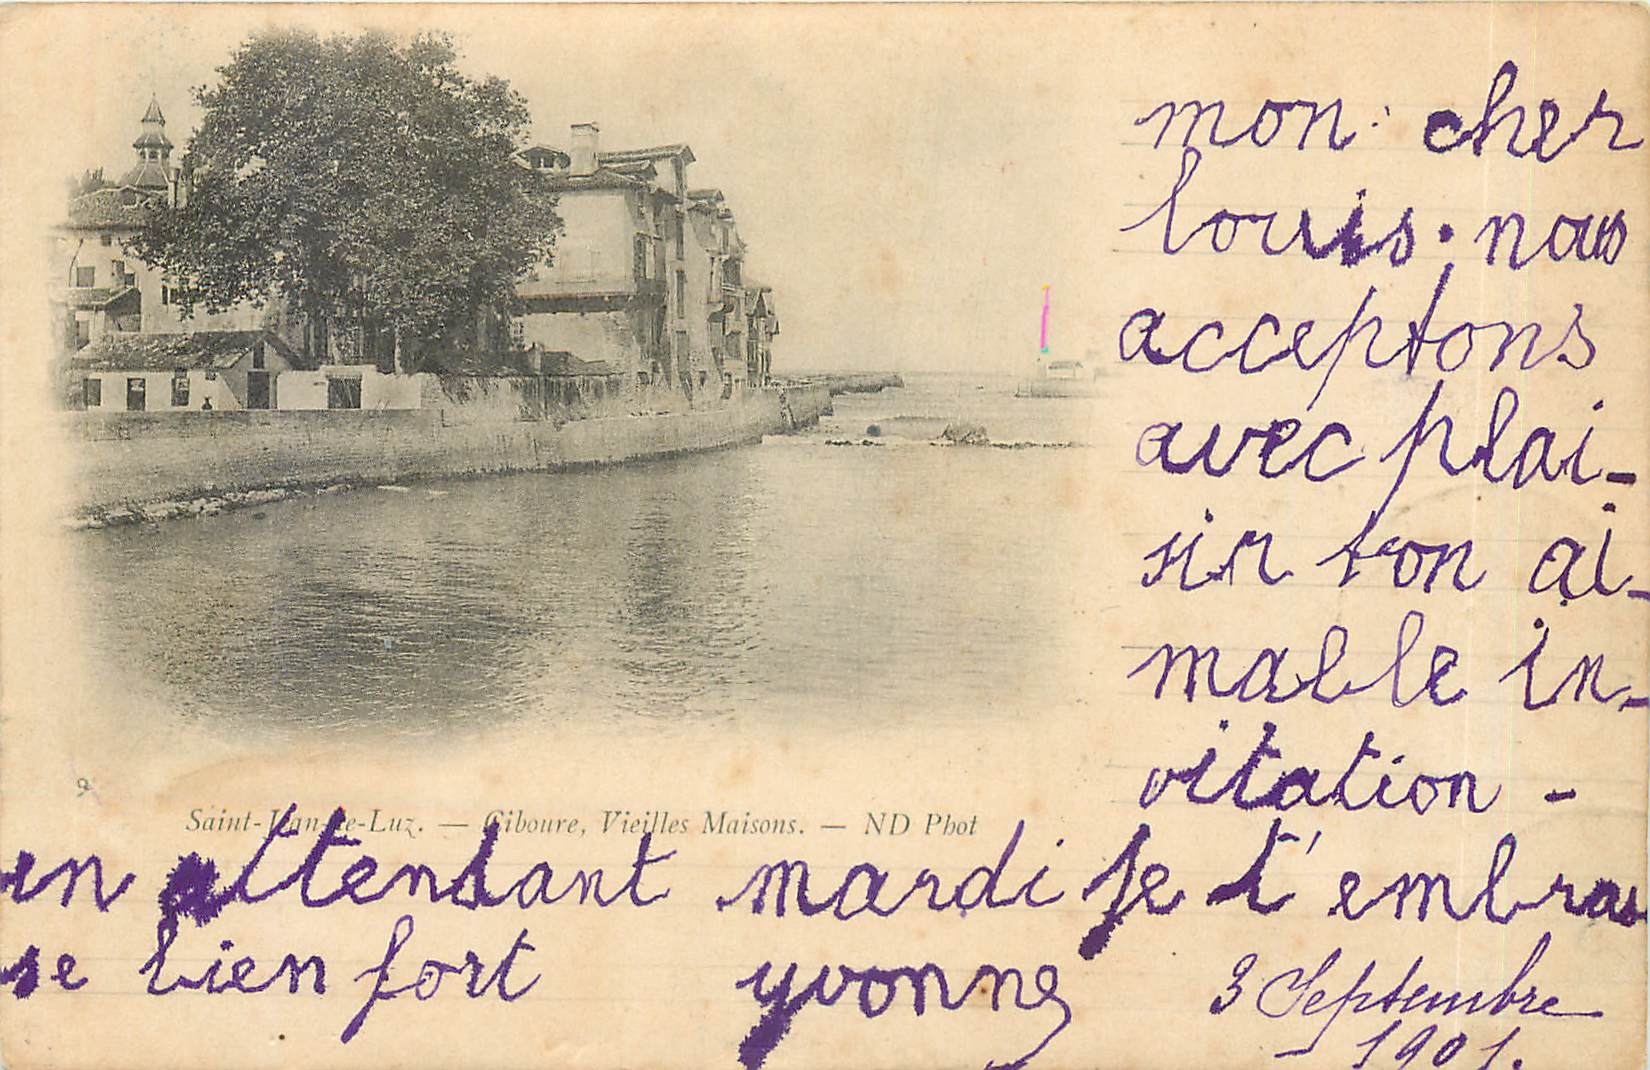 mon cher
louis. nous
acceptons
avec plai-
sir ton ai-
mable in-
vitation -
9
Saint-Jean-de-Luz. — Ciboure, Vieilles Maisons. — ND Phot
en attendant mardi je t'embras
se bien fort yvonne
3 Septembre
- 1901.